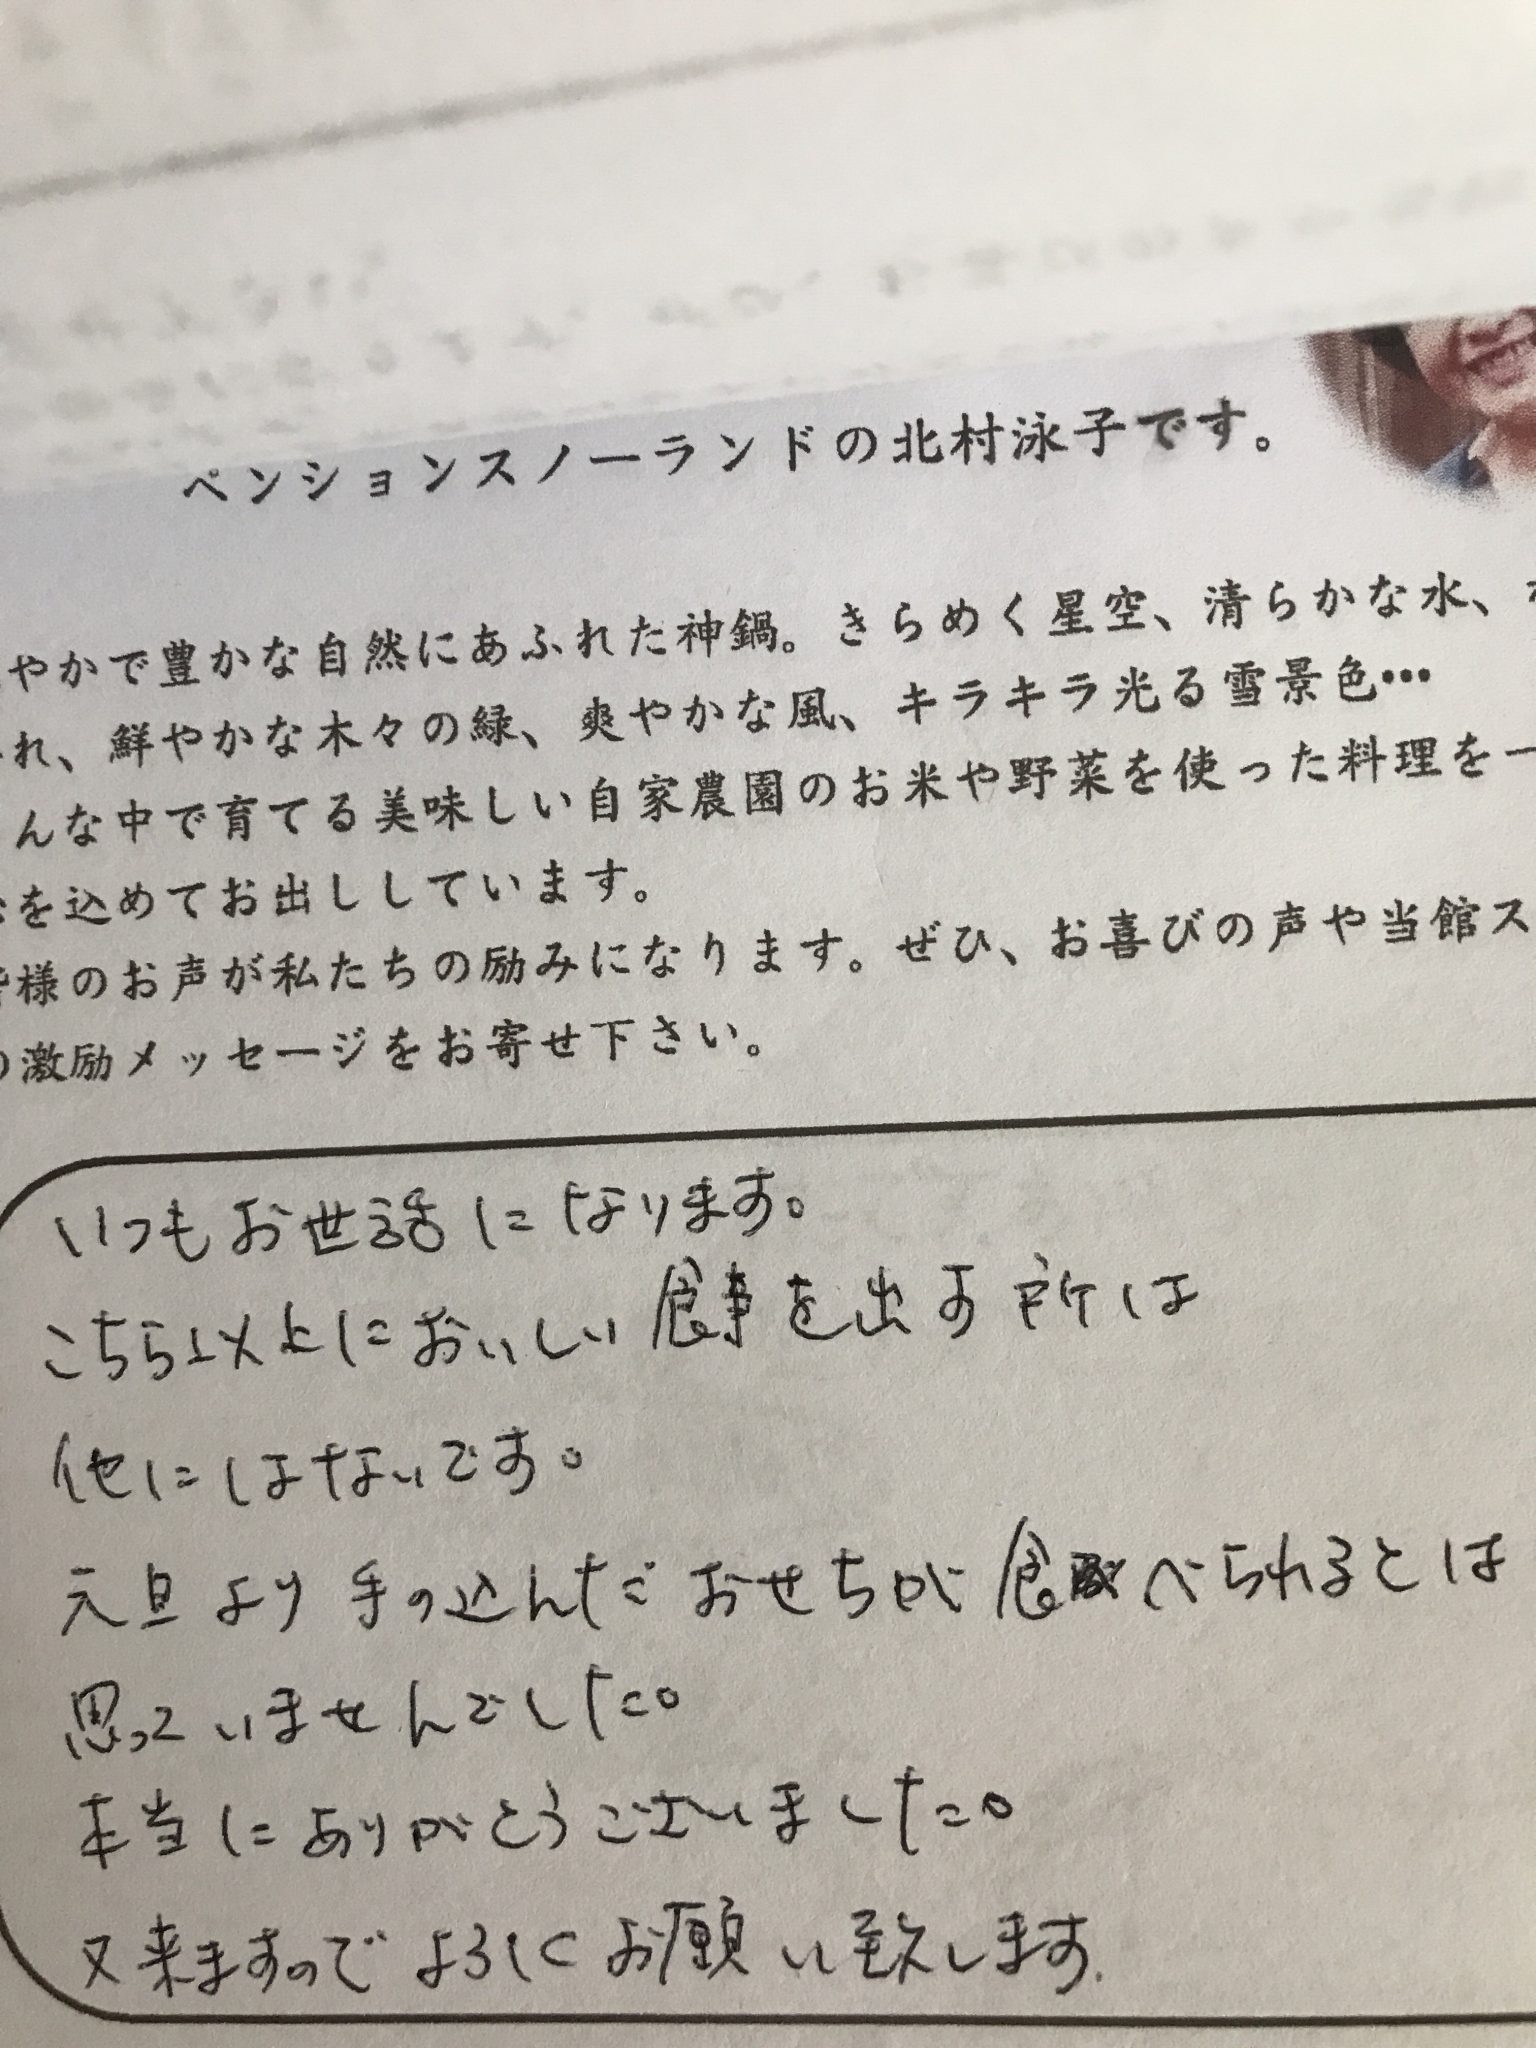 ペンションスノーランドの北村泳子です。
やかで豊かな自然にあふれた神鍋。きらめく星空、清らかな水、
れ、鮮やかな木々の緑、爽やかな風、キラキラ光る雪景色…
んな中で育てる美味しい自家農園のお米や野菜を使った料理を一
を込めてお出ししています。
様のお声が私たちの励みになります。ぜひ、お喜びの声や当館ス
の激励メッセージをお寄せ下さい。
いつもお世話になります。
こちら以上においしい食事を出す所は
他にはないです。
元旦より手の込んだおせちが食べられるとは
思っていませんでした。
本当にありがとうございました。
又来ますのでよろしくお願い致します.